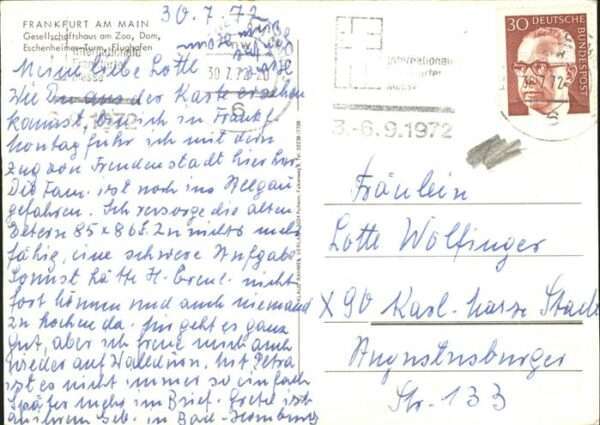 30.7.72
FRANKFURT AM MAIN
Gesellschaftshaus am Zoo, Dom,
Eschenheimer Turm, Flughafen
Internationale
Frankfurter
Messe
30.7.72-20
3.-6.9.1972
Meine liebe Lotte
Wie Du aus der Karte ersehen
kannst, bin ich in Frankf.
Montag fuhr ich mit dem
Zug von Freudenstadt hierher.
Die Fam. ist noch ins
gefahren. Ich versorge die alten
Eltern 85 x 86 J. Zu nichts mehr
fähig, eine schwere Aufgabe
Sonst hätte H. nicht
fort können und auch niemand
zu kochen da. Mir geht es ganz
gut, aber ich freue mich auch
wieder auf Walldürn. Mit Petra
ist es nicht immer so einfach
Später mehr im Brief. Gretel ist
in Bad-Homburg
30 DEUTSCHE
BUNDESPOST
Internationale
Frankfurter
Messe
3.-6.9.1972
Fräulein
Lotte Wolfinger
X90 Karl-Marx-Stadt
Augustusburger
Str. 133